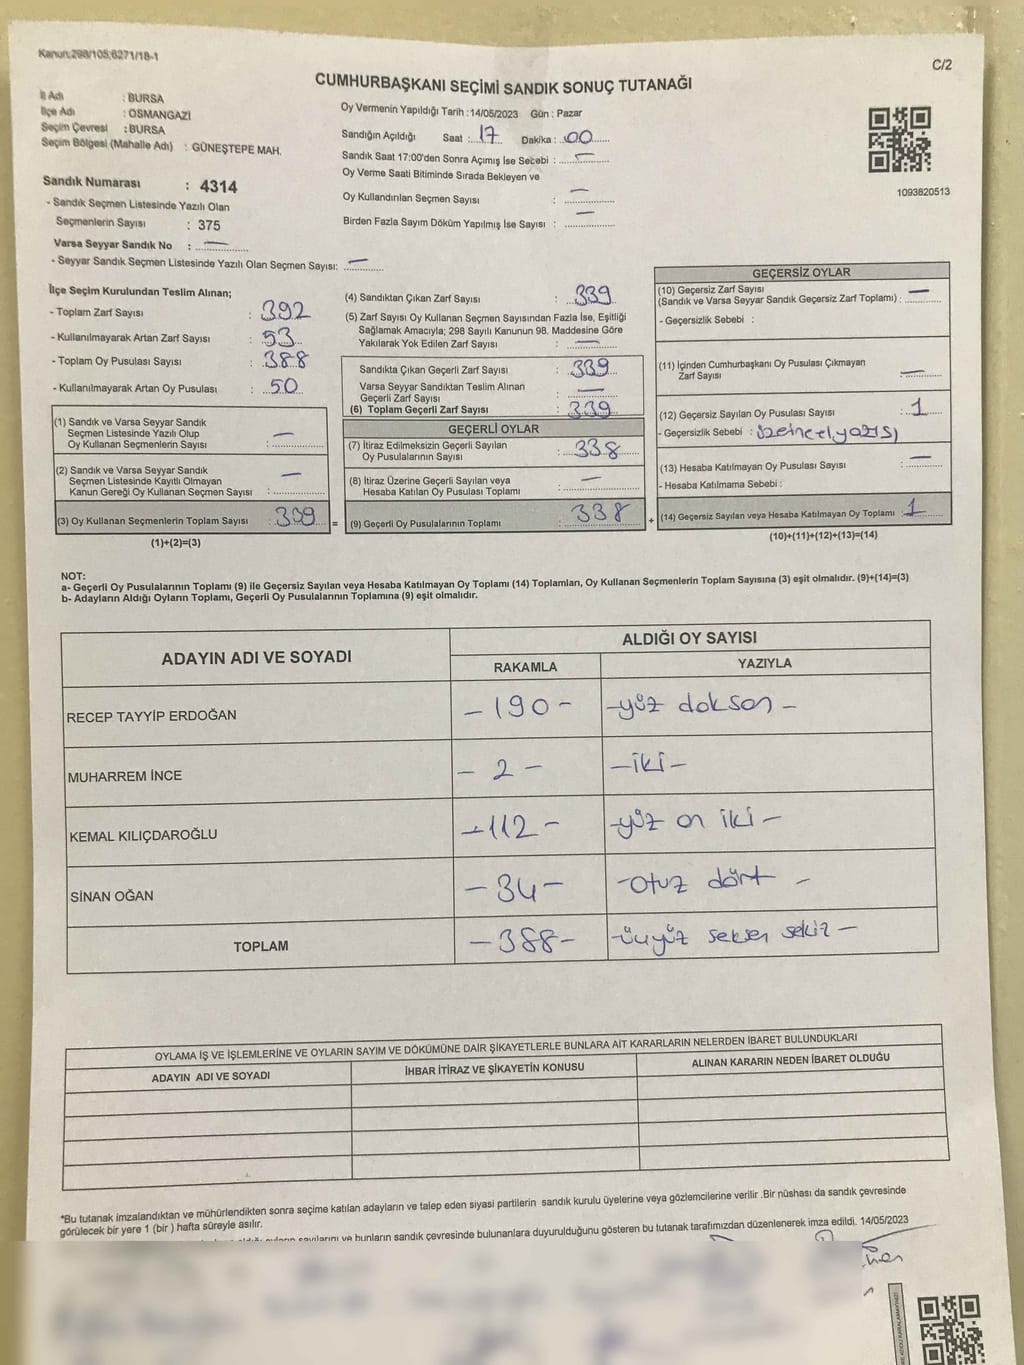 Kanun:298/105;6271/18-1
C/2
CUMHURBAŞKANI SEÇİMİ SANDIK SONUÇ TUTANAĞI
İl Adı : BURSA
İlçe Adı : OSMANGAZİ
Seçim Çevresi : BURSA
Seçim Bölgesi (Mahalle Adı) : GÜNEŞTEPE MAH.
Sandık Numarası : 4314
- Sandık Seçmen Listesinde Yazılı Olan
Seçmenlerin Sayısı : 375
Varsa Seyyar Sandık No : —
- Seyyar Sandık Seçmen Listesinde Yazılı Olan Seçmen Sayısı: —
Oy Vermenin Yapıldığı Tarih :14/05/2023 Gün : Pazar
Sandığın Açıldığı Saat : 17 Dakika : 00
Sandık Saat 17:00'den Sonra Açımış İse Sebebi : —
Oy Verme Saati Bitiminde Sırada Bekleyen ve
Oy Kullandırılan Seçmen Sayısı : —
Birden Fazla Sayım Döküm Yapılmış İse Sayısı : —
1093820513
İlçe Seçim Kurulundan Teslim Alınan;
- Toplam Zarf Sayısı : 392
- Kullanılmayarak Artan Zarf Sayısı : 53
- Toplam Oy Pusulası Sayısı : 388
- Kullanılmayarak Artan Oy Pusulası : 50
(1) Sandık ve Varsa Seyyar Sandık
Seçmen Listesinde Yazılı Olup
Oy Kullanan Seçmenlerin Sayısı : —
(2) Sandık ve Varsa Seyyar Sandık
Seçmen Listesinde Kayıtlı Olmayan
Kanun Gereği Oy Kullanan Seçmen Sayısı : —
(3) Oy Kullanan Seçmenlerin Toplam Sayısı : 339
(1)+(2)=(3)
(4) Sandıktan Çıkan Zarf Sayısı : 339
(5) Zarf Sayısı Oy Kullanan Seçmen Sayısından Fazla İse, Eşitliği
Sağlamak Amacıyla; 298 Sayılı Kanunun 98. Maddesine Göre
Yakılarak Yok Edilen Zarf Sayısı : —
Sandıkta Çıkan Geçerli Zarf Sayısı : 339
Varsa Seyyar Sandıktan Teslim Alınan
Geçerli Zarf Sayısı : —
(6) Toplam Geçerli Zarf Sayısı : 339
GEÇERLİ OYLAR
(7) İtiraz Edilmeksizin Geçerli Sayılan
Oy Pusulalarının Sayısı : 338
(8) İtiraz Üzerine Geçerli Sayılan veya
Hesaba Katılan Oy Pusulası Toplamı : —
= (9) Geçerli Oy Pusulalarının Toplamı : 338
GEÇERSİZ OYLAR
(10) Geçersiz Zarf Sayısı
(Sandık ve Varsa Seyyar Sandık Geçersiz Zarf Toplamı) : —
- Geçersizlik Sebebi :
(11) İçinden Cumhurbaşkanı Oy Pusulası Çıkmayan
Zarf Sayısı : —
(12) Geçersiz Sayılan Oy Pusulası Sayısı : 1
- Geçersizlik Sebebi : üzerine el yazısı
(13) Hesaba Katılmayan Oy Pusulası Sayısı : —
- Hesaba Katılmama Sebebi :
+ (14) Geçersiz Sayılan veya Hesaba Katılmayan Oy Toplamı : 1
(10)+(11)+(12)+(13)=(14)
NOT:
a- Geçerli Oy Pusulalarının Toplamı (9) ile Geçersiz Sayılan veya Hesaba Katılmayan Oy Toplamı (14) Toplamları, Oy Kullanan Seçmenlerin Toplam Sayısına (3) eşit olmalıdır. (9)+(14)=(3)
b- Adayların Aldığı Oyların Toplamı, Geçerli Oy Pusulalarının Toplamına (9) eşit olmalıdır.
ADAYIN ADI VE SOYADI
ALDIĞI OY SAYISI
RAKAMLA YAZIYLA
RECEP TAYYİP ERDOĞAN - 190 - - yüz doksan -
MUHARREM İNCE - 2 - - iki -
KEMAL KILIÇDAROĞLU - 112 - - yüz on iki -
SİNAN OĞAN - 34 - - otuz dört -
TOPLAM - 388 - - üçyüz seksen sekiz -
OYLAMA İŞ VE İŞLEMLERİNE VE OYLARIN SAYIM VE DÖKÜMÜNE DAİR ŞİKAYETLERLE BUNLARA AİT KARARLARIN NELERDEN İBARET BULUNDUKLARI
ADAYIN ADI VE SOYADI İHBAR İTİRAZ VE ŞİKAYETİN KONUSU ALINAN KARARIN NEDEN İBARET OLDUĞU
*Bu tutanak imzalandıktan ve mühürlendikten sonra seçime katılan adayların ve talep eden siyasi partilerin sandık kurulu üyelerine veya gözlemcilerine verilir .Bir nüshası da sandık çevresinde
görülecek bir yere 1 (bir ) hafta süreyle asılır.
sayılarını ve bunların sandık çevresinde bulunanlara duyurulduğunu gösteren bu tutanak tarafımızdan düzenlenerek imza edildi. 14/05/2023